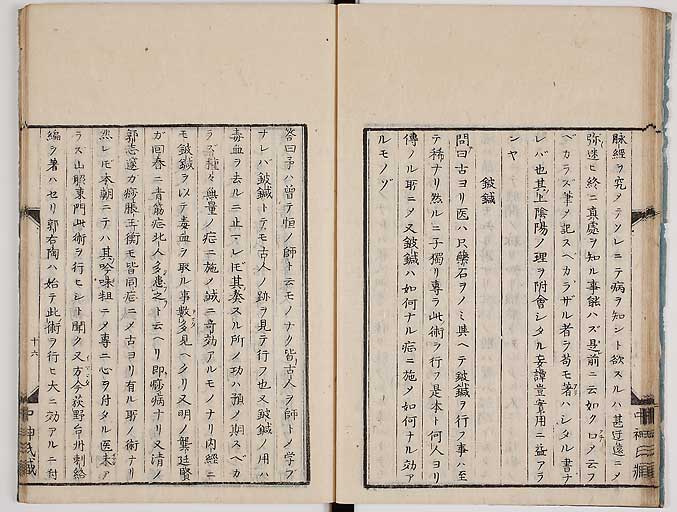 脉經ヲ究メテソレニテ病ヲ知ント欲スルハ甚迂遠ニメ
弥迷ヒ終ニ真處ヲ知ル事能ハズ是前ニ云如ク口ノ云フ
ベカラズ筆ノ記スベカラザル者ヲ苟モ著ハシタル書ナ
レバ也其上陰陽ノ理ヲ附會シタル妄譚豈實用ニ益アラ
ンヤ
鈹鍼
問曰古ヨリ医ハ只藥石ヲノミ興ヘテ鈹鍼ヲ行フ事ハ至
テ稀ナリ然ルニ子獨リ専ラ此術ヲ行フ是本ト何人ヨリ
傳ノル耶ニメ又鈹鍼ハ如何ナル症ニ施メ如何ナル効ア
ルモノゾ
答曰予ハ曽テ恒ノ師ト云モノナク皆古人ヲ師トメ学ブ
ナレバ鈹鍼トテモ古人ノ跡ヲ見テ行フ也又鈹鍼ノ用ハ
毒血ヲ去ルニ止マレ𪜈其奏スル所ノ功ハ預ノ期スベカ
ラズ種々無量ノ症ニ施メ誠ニ竒効アルモノナリ内經ニ
モ鈹鍼ヲ以テ毒血ヲ取ル事數多見ヘタリ又明ノ龔廷賢
ガ回春ニ青筋症北人多患之ト云ヘリ即痧病ナリ又清ノ
郭志邃カ痧脹玉衡モ皆同症ニメ古ヨリ有ル耶ノ術ナリ
然レ𪜈本朝ニテハ其吟味粗ニメ専ニ心ヲ付タル医未ア
ラズ山脇東門此術ヲ行ヒシト聞ク又方今荻野台州刺絡
編ヲ著ハセリ郭右陶ハ始テ此術ヲ行ヒ大ニ効アルニ付
十六
中神氏蔵